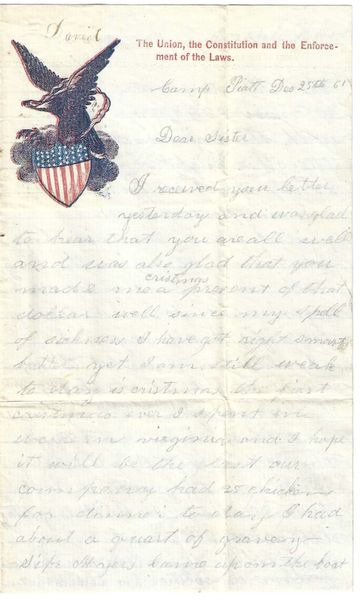 David
The Union, the Constitution and the Enforce-
ment of the Laws.
Camp Piatt Dec 25th 61
Dear Sister
I received your letter
yesterday and was glad
to hear that you are all well
and was also glad that you
cristmas
made me a present of that
dollar well since my spell
of sickness I have got right smart
yet I am still weak
to day is cristmas the first
cristmas ever I spent in
western virginia and I hope
it will be the last our
company had 25 chickens
for dinner to day I had
about a quart of gravery
came up on the boat